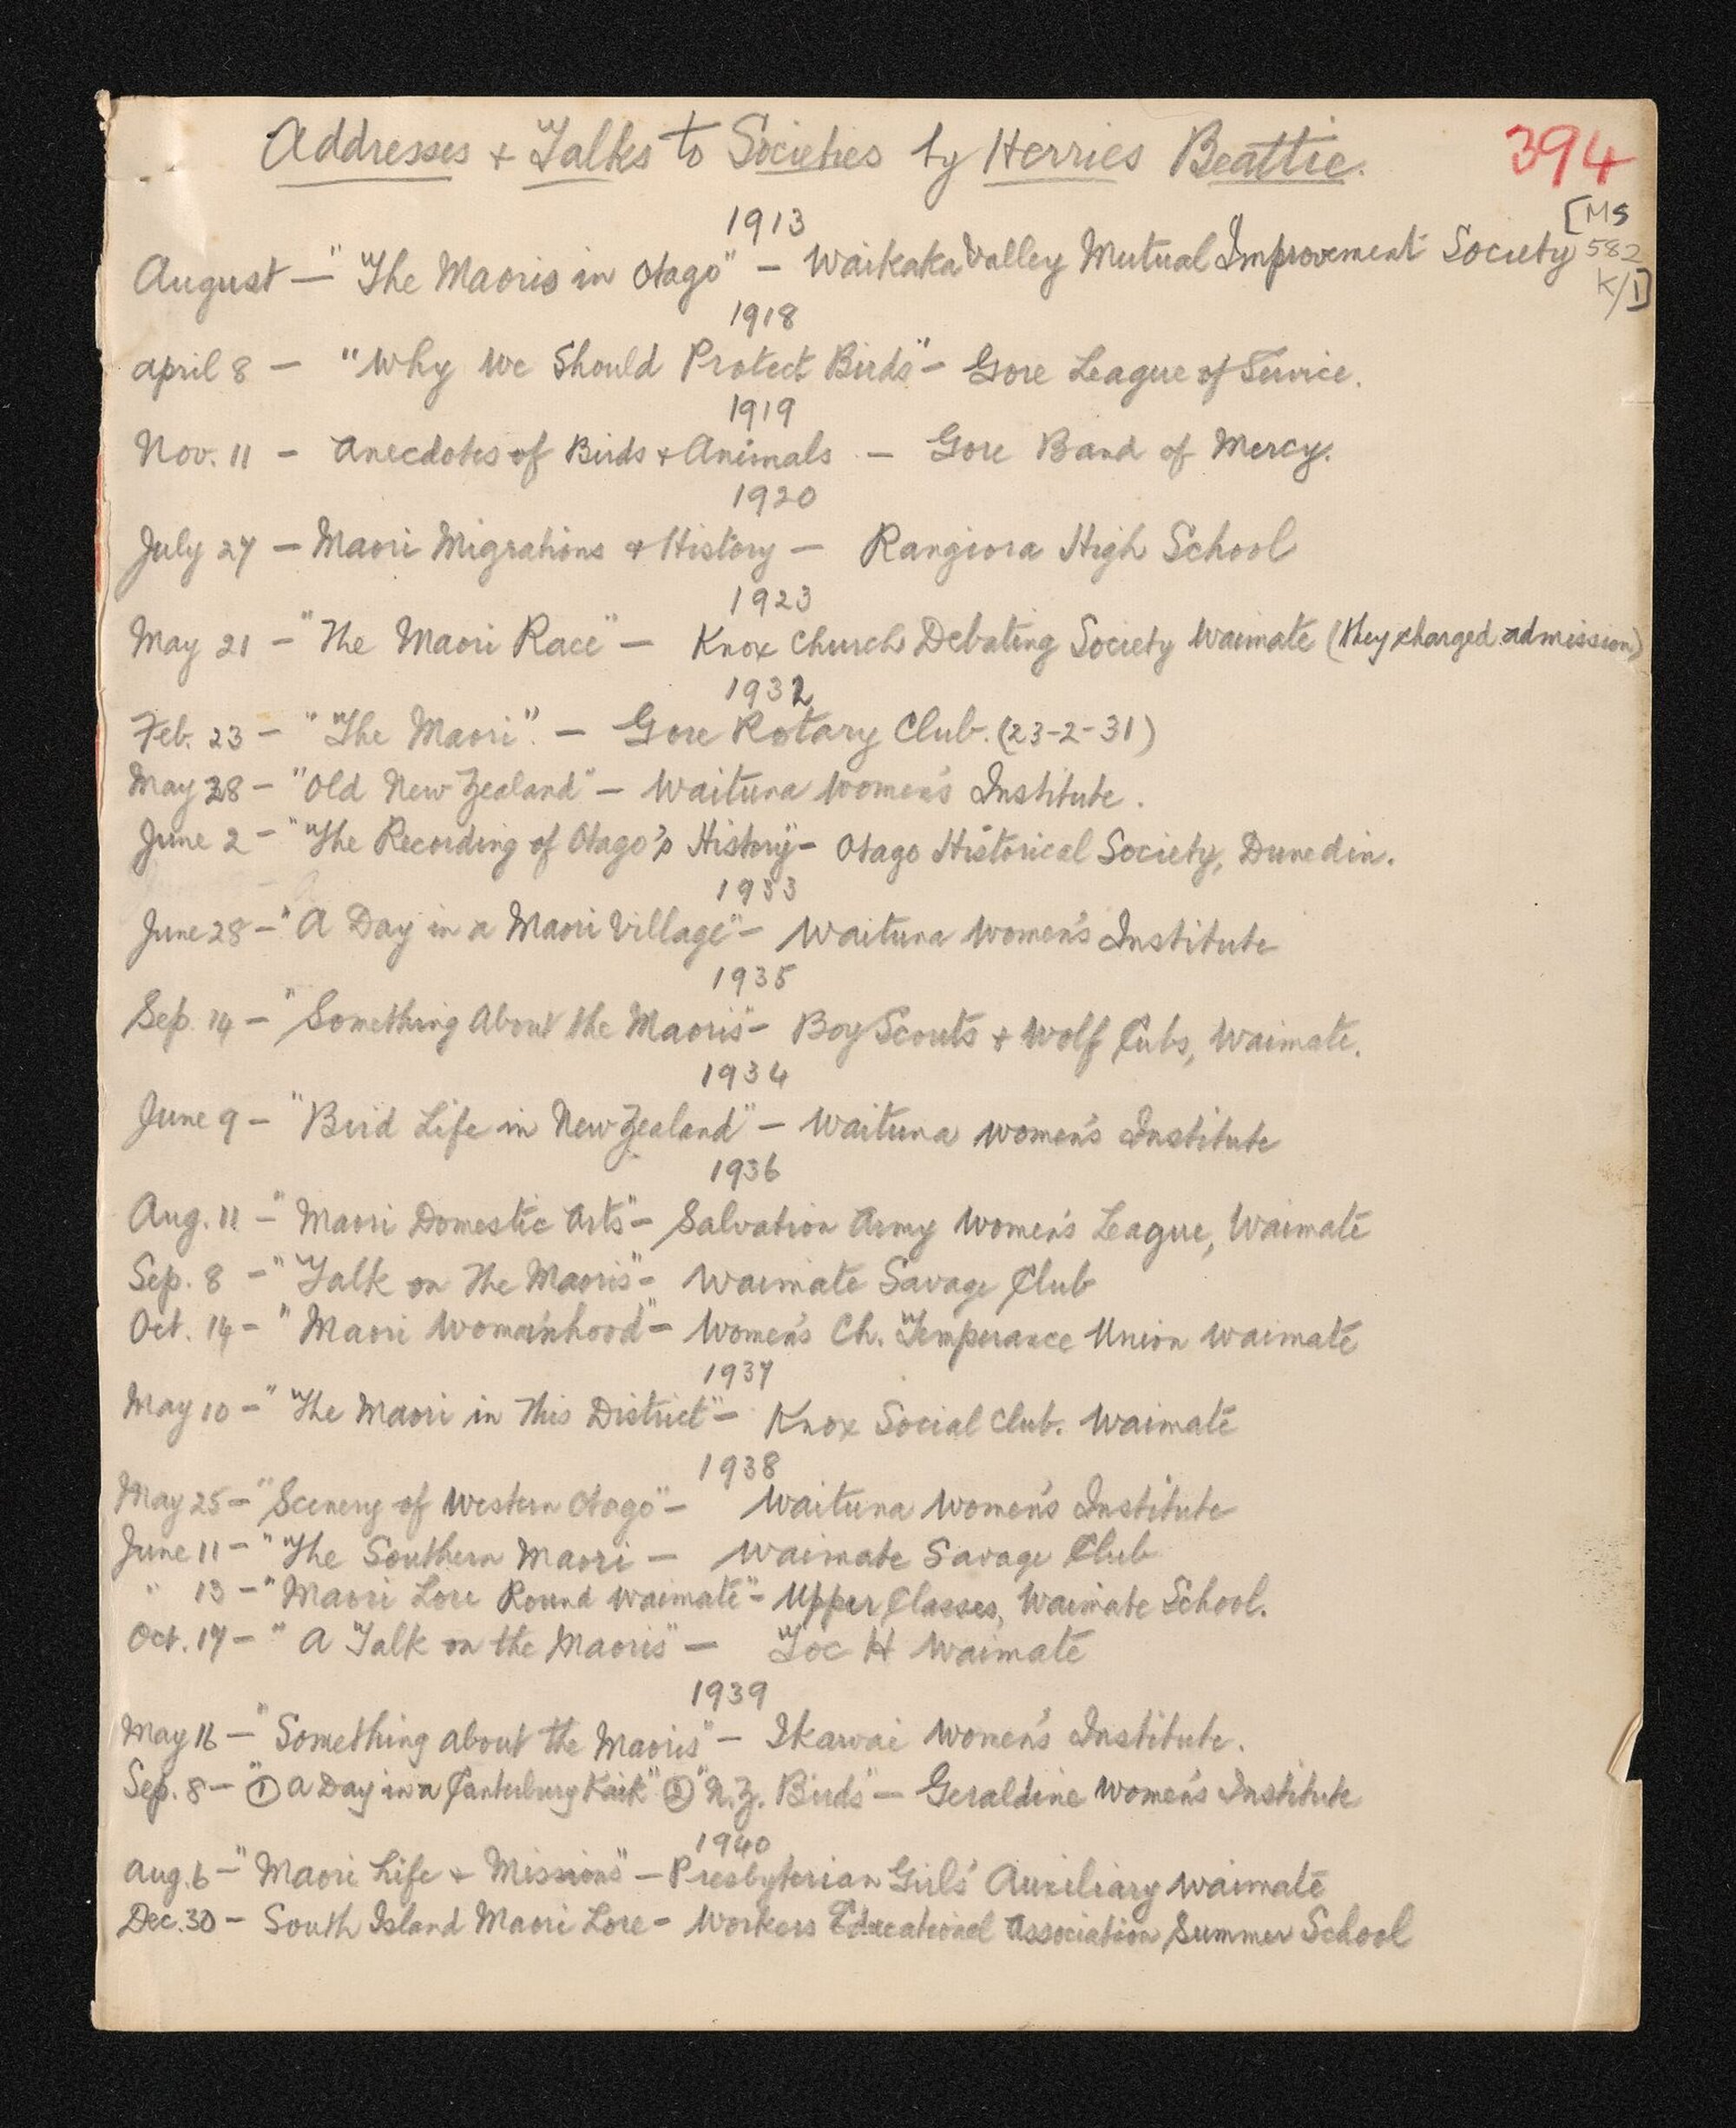 Addresses & Talks to Societies by Herries Beattie.
394
[MS
582
K/1]
1913
August — "The Maoris in Otago" — Waikaka Valley Mutual Improvement Society
1918
April 8 — "Why We Should Protect Birds" — Gore League of Service.
1919
Nov. 11 — Anecdotes of Birds & Animals — Gore Band of Mercy.
1920
July 27 — Maori Migrations & History — Rangiora High School
1923
May 21 — "The Maori Race" — Knox Church Debating Society Waimate (they charged admission)
1932
Feb. 23 — "The Maori". — Gore Rotary Club. (23-2-31)
May 28 — "Old New Zealand" — Waituna Women's Institute.
June 2 — "The Recording of Otago's History" — Otago Historical Society, Dunedin.
1933
June 28 — "A Day in a Maori Village" — Waituna Women's Institute
1935
Sep. 14 — "Something About the Maoris" — Boy Scouts & Wolf Cubs, Waimate.
1934
June 9 — "Bird Life in New Zealand" — Waituna Women's Institute
1936
Aug. 11 — "Maori Domestic Arts" — Salvation Army Women's League, Waimate
Sep. 8 — "Talk on The Maoris" — Waimate Savage Club
Oct. 14 — "Maori Womanhood" — Women's Ch. Temperance Union Waimate
1937
May 10 — "The Maori in This District" — Knox Social Club. Waimate
1938
May 25 — "Scenery of Western Otago" — Waituna Women's Institute
June 11 — "The Southern Maori — Waimate Savage Club
" 13 — "Maori Lore Round Waimate" — Upper Classes, Waimate School.
Oct. 17 — "A Talk on the Maoris" — Toc H Waimate
1939
May 16 — "Something about the Maoris" — Ikawai Women's Institute.
Sep. 8 — "① A Day in a Canterbury Kaik" ② "N.Z. Birds" — Geraldine Women's Institute
1940
Aug. 6 — "Maori Life & Missions" — Presbyterian Girls' Auxiliary Waimate
Dec. 30 — South Island Maori Lore — Workers Educational Association Summer School